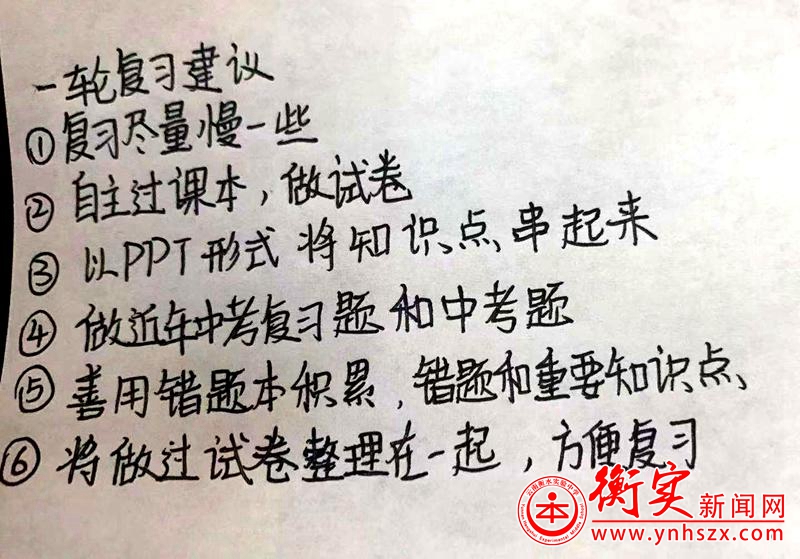 一轮复习建议
①复习尽量慢一些
②自主过课本，做试卷
③以PPT形式将知识点串起来
④做近年中考复习题和中考题
⑤善用错题本积累，错题和重要知识点、
⑥将做过试卷整理在一起，方便复习
云南衡水实验中学
本
衡实新闻网
www.ynhszx.com